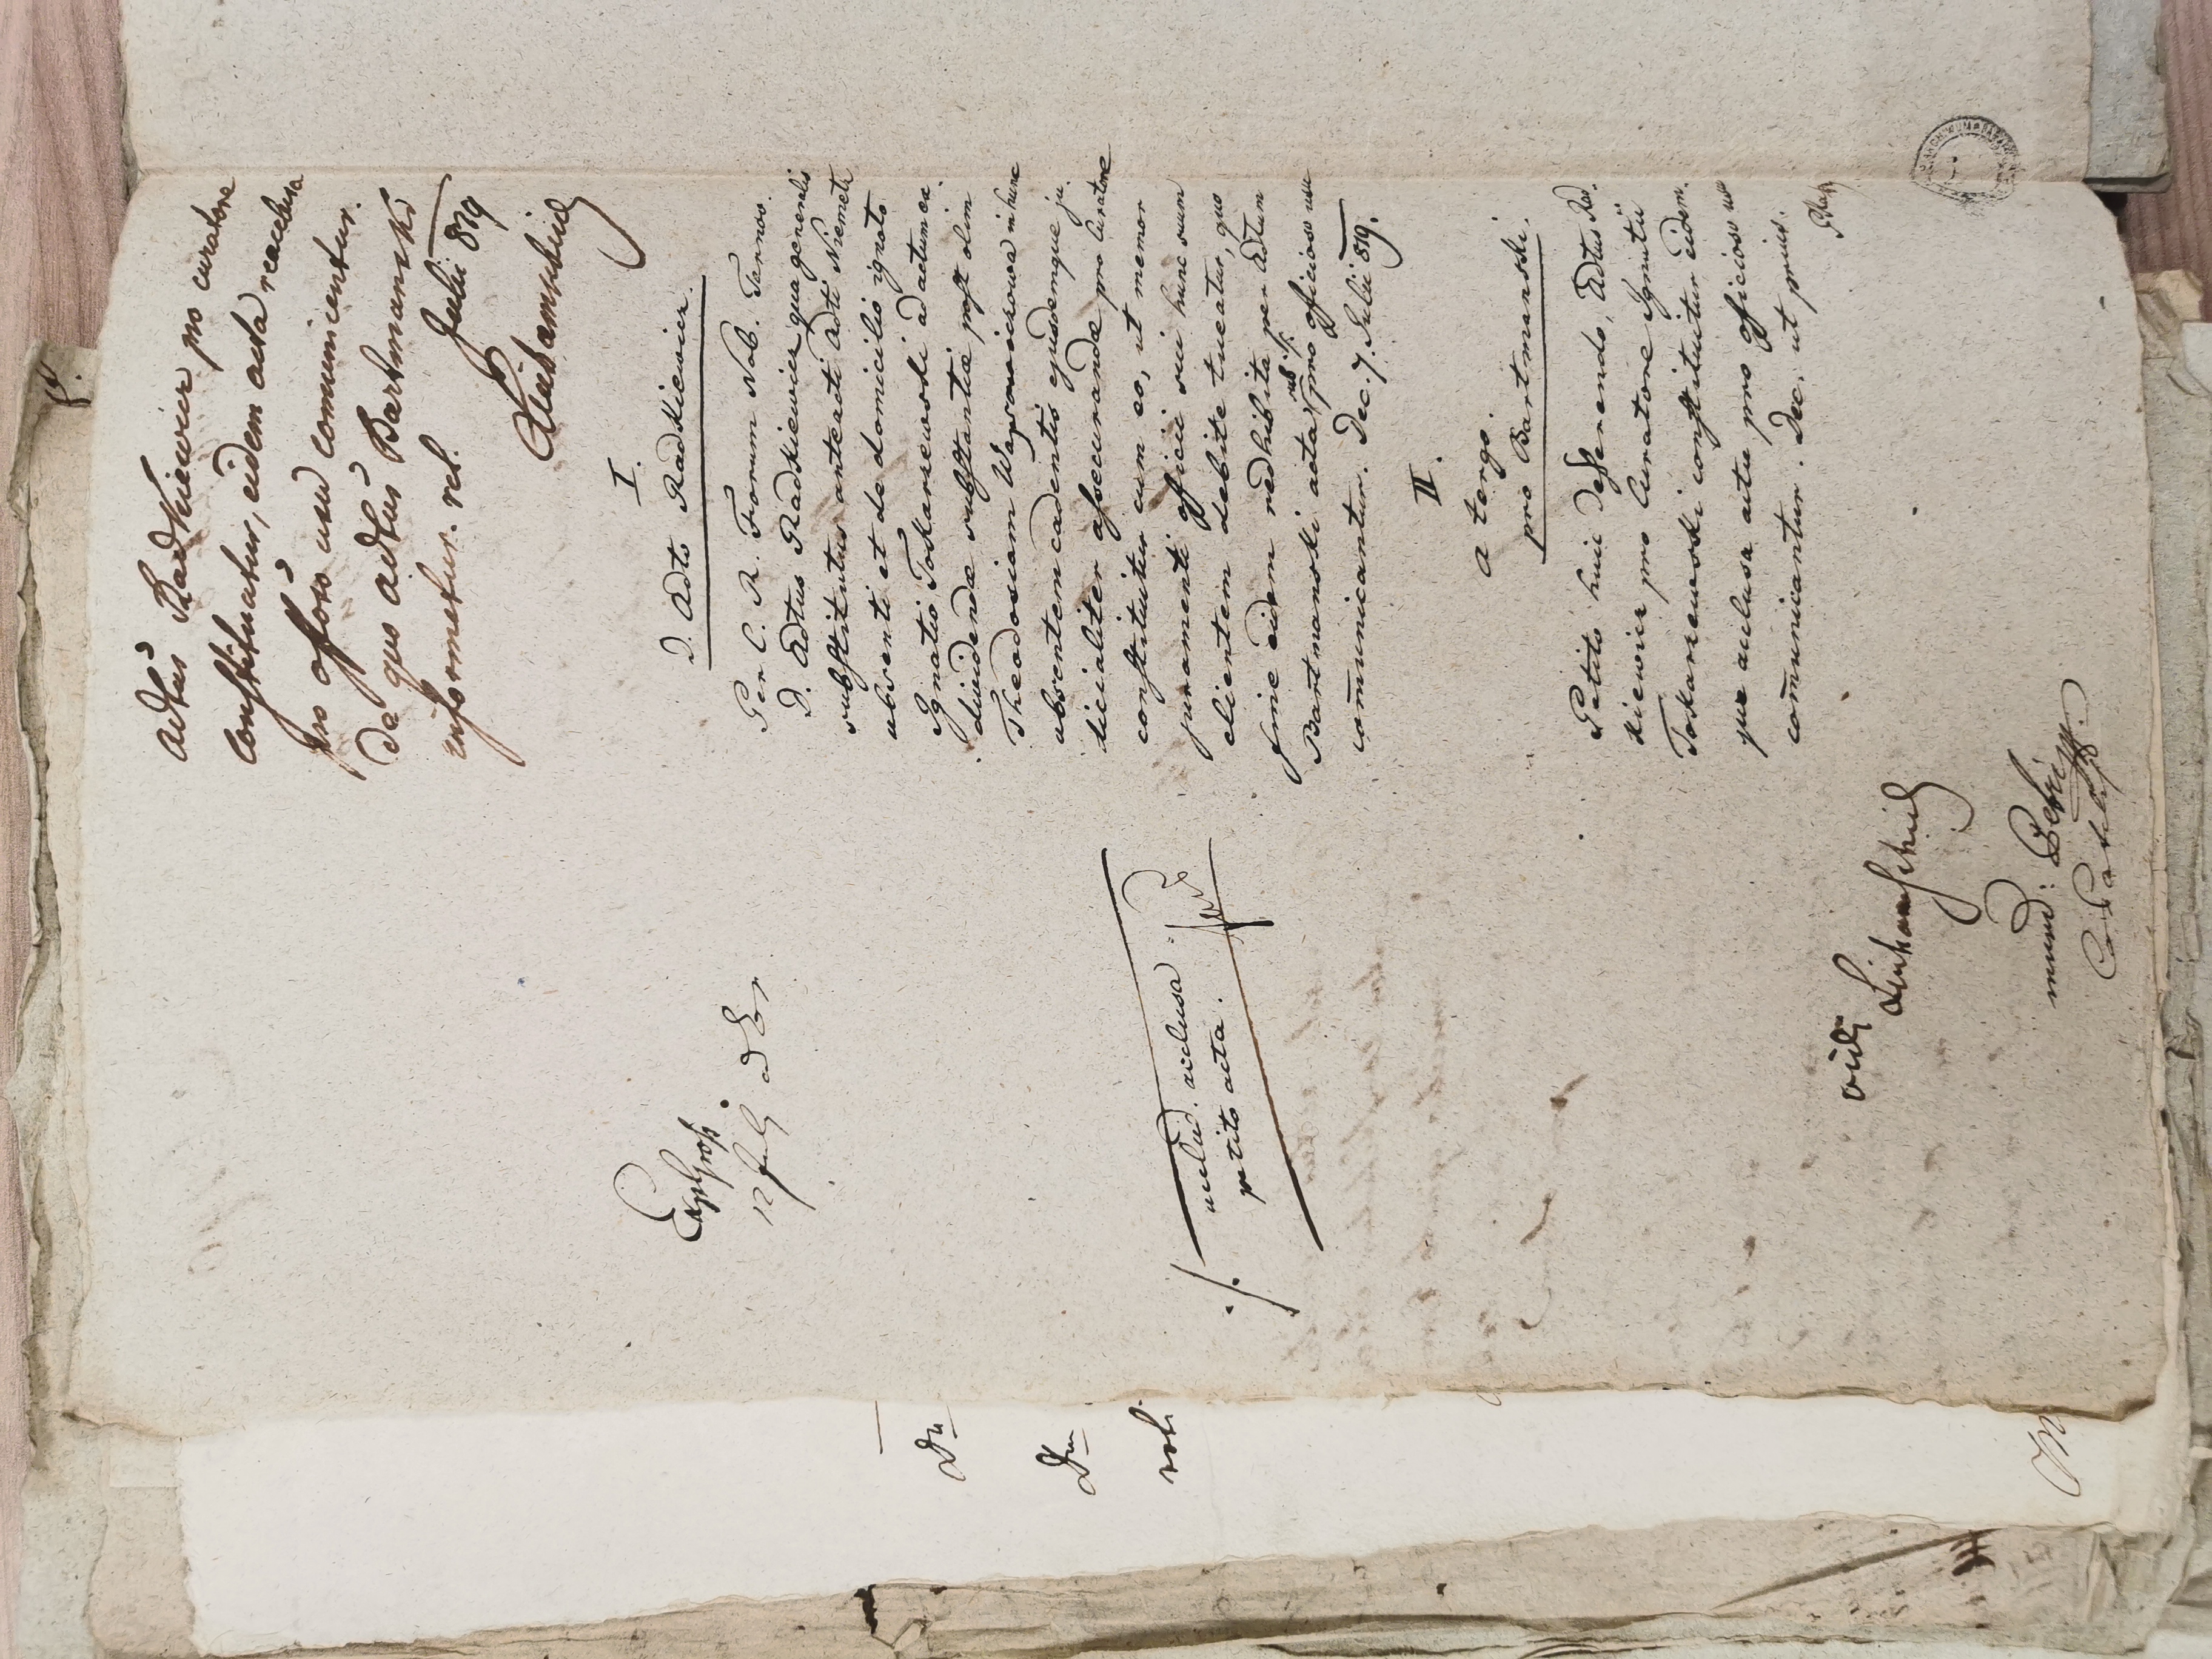 Adtus Radkiewicz pro curatore
constituatur, eidem acta reacclusa
pro offoso usu communicentur.
de quo adtus Bartmanski
informetur. rel. Julii 819
I.
D. Adto Radkiewicz.
Per C. R. Forum Nob. Tarnov.
D. Adtus Radkiewicz qua generalis
substitutus anteacti adti Niemetz
absenti et de domicilio ignoto
Ignatio Tokarzewski ad actum ex-
dividendæ substantiæ post olim
Theodosiam in hunc
absentem cadentis ejusdemque ju-
dicialiter assecurandæ pro Curatore
constituitur cum eo, ut memor
juramenti officii sui hunc suum
clientem debite tueatur, quo
fine eidem redhibita per Adtum
Bartmanski acta sub ./. pro officioso usu
com̄unicantur. Dec. 7. Julii 819.
II.
a tergo.
pro Bartmanski.
Petito huic defferendo, Adtus Rad-
kiewicz pro Curatore Ignatii
Tokarzewski constituitur eidem-
que acclusa acta pro officioso usu
com̄unicantur. Dec. ut prius.
Exp
12 July
./. acclud. acclusa
petito acta.
vidi
mund:
Du
Du